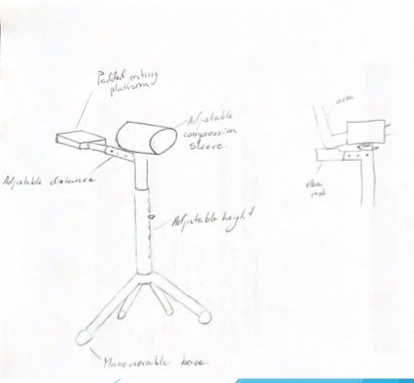 Padded resting
platform
Adjustable
compression
sleeve.
Adjustable distance
Adjustable height
Maneuverable base.
arm
elbow
rest